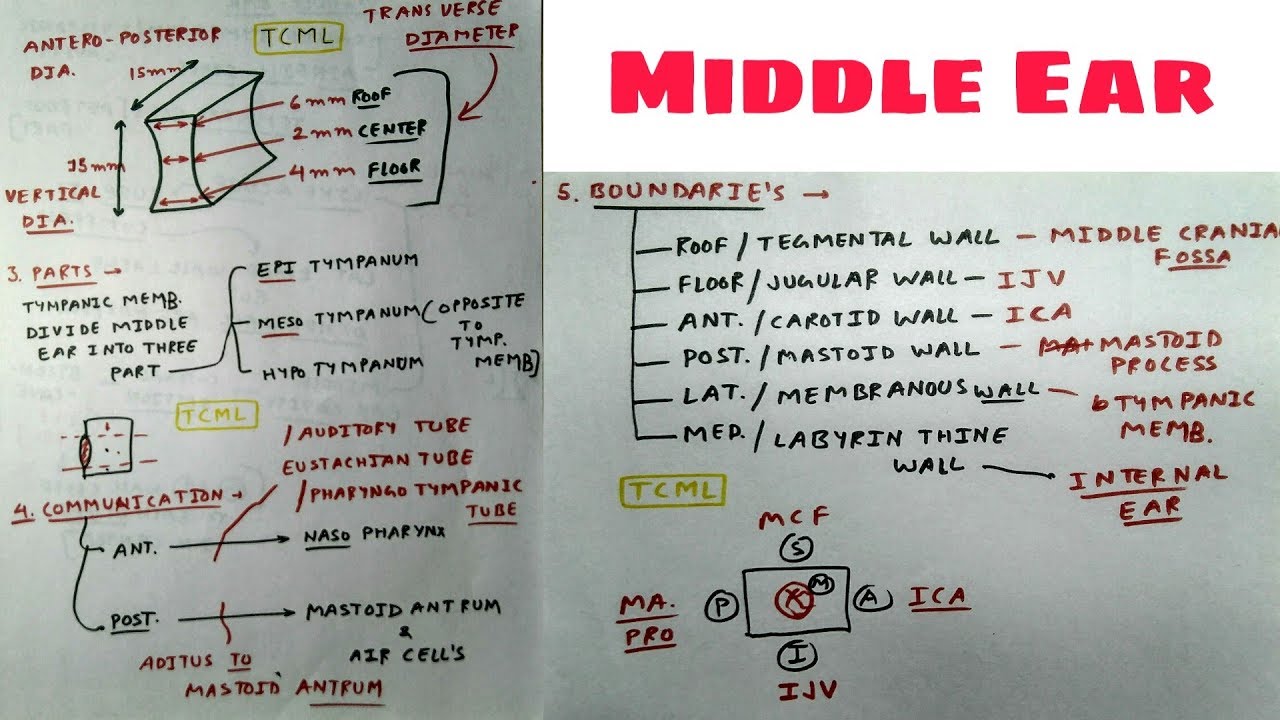 MIDDLE EAR
ANTERO-POSTERIOR
DIA.
TCML
TRANSVERSE
DIAMETER
15mm
6mm ROOF
2mm CENTER
4mm FLOOR
15mm
VERTICAL
DIA.
3. PARTS →
TYMPANIC MEMB.
DIVIDE MIDDLE
EAR INTO THREE
PART
EPI TYMPANUM
MESO TYMPANUM (OPPOSITE
TO
TYMP.
MEMB)
HYPO TYMPANUM
TCML
/AUDITORY TUBE
EUSTACHIAN TUBE
/PHARYNGO TYMPANIC
TUBE
4. COMMUNICATION →
ANT. → NASO PHARYNX
POST. → MASTOID ANTRUM
&
AIR CELL'S
ADITUS TO
MASTOID ANTRUM
5. BOUNDARIE'S →
ROOF / TEGMENTAL WALL — MIDDLE CRANIA
FOSSA
FLOOR/JUGULAR WALL — IJV
ANT. / CAROTID WALL — ICA
POST. / MASTOID WALL — MASTOID
PROCESS
LAT. / MEMBRANOUS WALL — TYMPANIC
MEMB.
MED. / LABYRIN THINE
WALL — INTERNAL
EAR
TCML
MCF
S
MA.
PRO
P
M
A
ICA
I
IJV